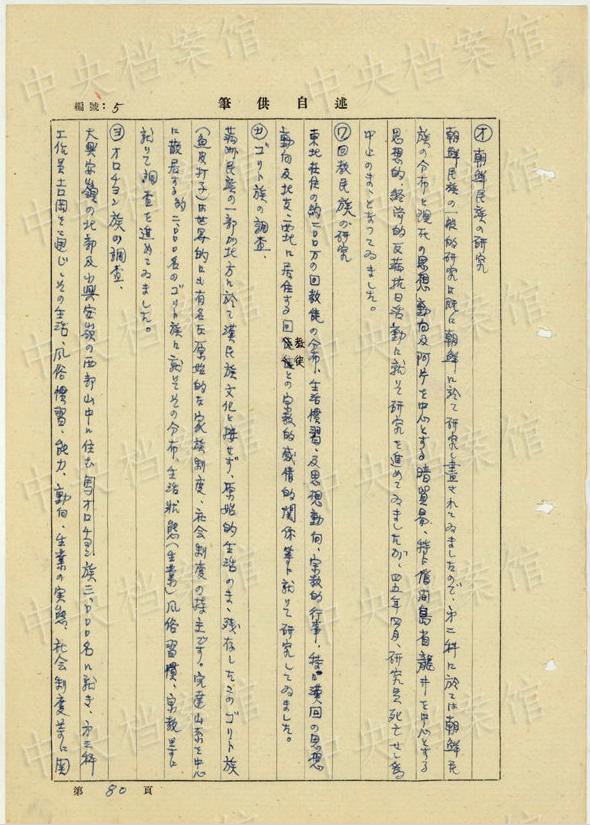 中央档案馆
述自供筆
編號：5
㋔ 朝鮮民族の研究
朝鮮民族の一般的研究は既に朝鮮に於て研究し盡されてゐましたので、第二科に於ては朝鮮民
族の分布と現在の思想動向及阿片を中心とする暗貿易、特に舊間島省龍井を中心とする
思想的経済的反満抗日活動に就いて研究を進めてゐましたが、四五年四月、研究員死亡せし為
中止のまゝとなってゐました。
㋻ 回教民族の研究
東北在住の約二〇〇万の回教徒の分布、生活慣習、及思想動向、宗教的行事、特に漢回の思想
動向及北支、西北に居住する回教徒との宗教的感情的関係等に就いて研究してゐました。
㋕ ゴリト族の調査、
満州民族の一部が地方に於て漢民族文化と接せず、原始的生活のまゝ残存したこのゴリト族
(魚皮打子)は世界的にも有名な原始的な家族制度、社会制度の持主です。完達山系を中心
に散居する約二、〇〇〇名のゴリト族に就いてその分布、生活状態(生業)風俗習慣、宗教等に
就いて調査を進めてゐました。
㋵ オロチョン族の調査、
大興安嶺の北部及小興安嶺の西部山中に住む馬オロチョン族三、〇〇〇名に就き、第三科
工作員吉岡を通じ、その生活、風俗慣習、能力、動向、生業の実態、社会制度等に関
第 80 頁